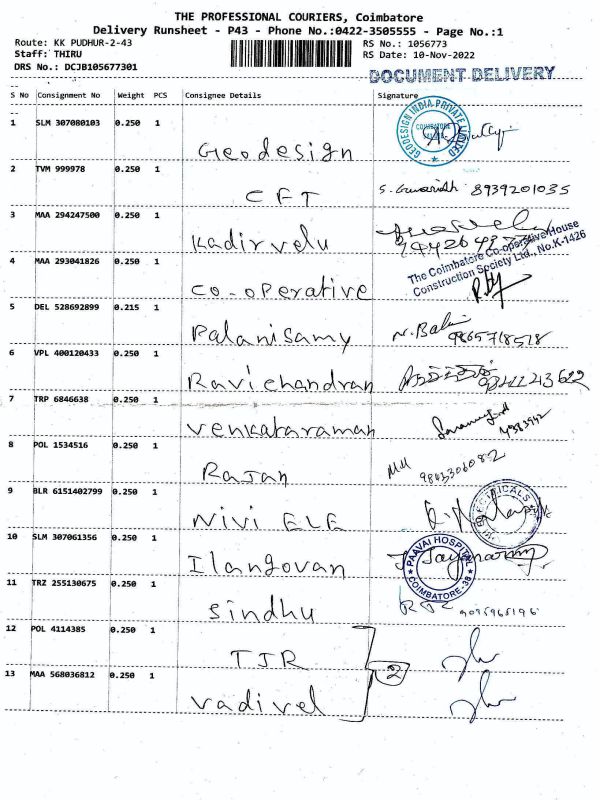 THE PROFESSIONAL COURIERS, Coimbatore
Delivery Runsheet - P43 - Phone No.:0422-3505555 - Page No.:1
Route: KK PUDHUR-2-43 RS No.: 1056773
Staff: THIRU RS Date: 10-Nov-2022
DRS No.: DCJB105677301
DOCUMENT DELIVERY
S No Consignment No Weight PCS Consignee Details Signature
1 SLM 307080103 0.250 1
Geodesign
GEODESIGN INDIA PRIVATE LIMITED
COIMBATORE
2 TVM 999978 0.250 1
CFT 8939201035
3 MAA 294247500 0.250 1
Kadirvelu
4 MAA 293041826 0.250 1
Co-operative
The Coimbatore Co-operative House
Construction Society Ltd., No.K-1426
5 DEL 528692899 0.215 1
Palanisamy N. Balu
9865718518
6 VPL 400120433 0.250 1
Ravichandran
7 TRP 6846638 0.250 1
Venkataraman
8 POL 1534516 0.250 1
Rajan
9 BLR 6151402799 0.250 1
Nivi ELE
10 SLM 307061356 0.250 1
Ilangovan
PAAVAI HOSPITAL
COIMBATORE.38
11 TRZ 255130675 0.250 1
Sindhu
12 POL 4114385 0.250 1
TJR
2
13 MAA 568036812 0.250 1
Vadivel